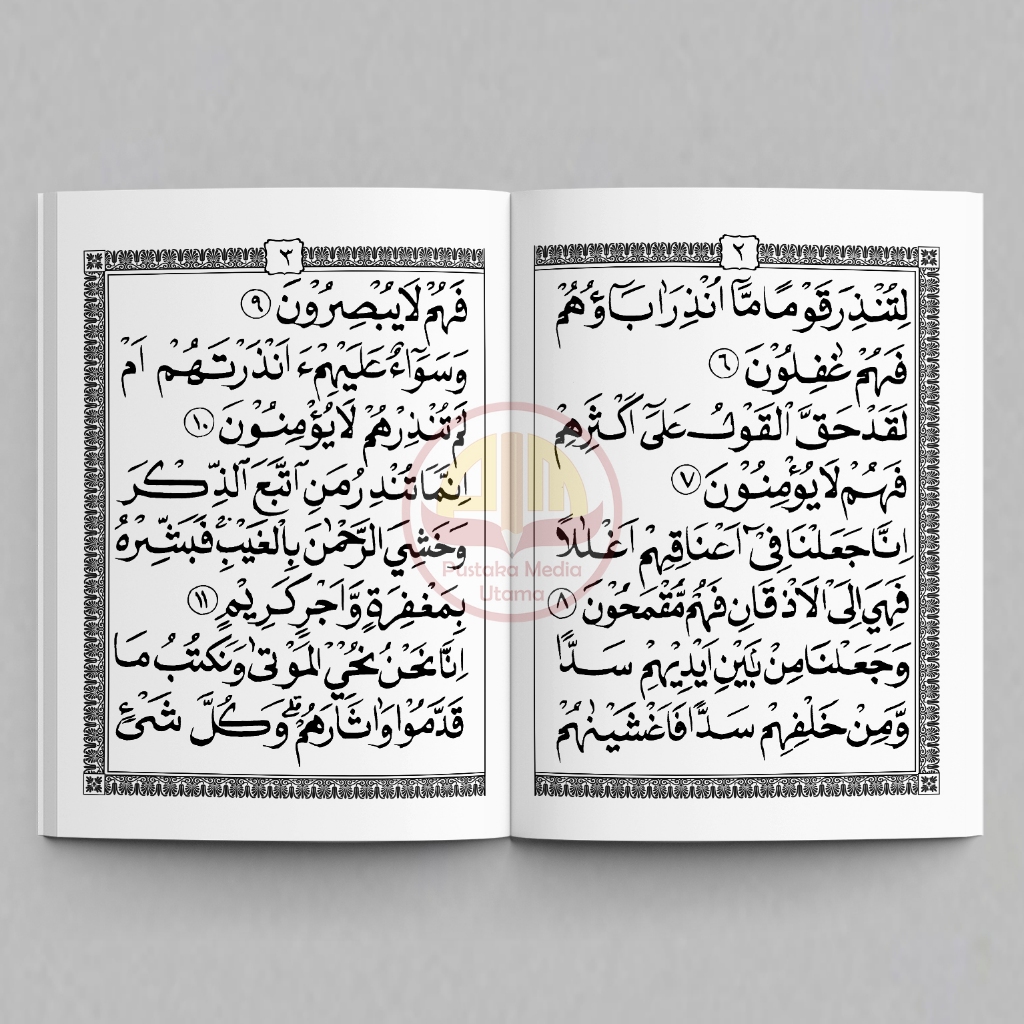 ٢
لِتُنْذِرَ قَوْمًا مَّآ اُنْذِرَ اٰبَآؤُهُمْ
فَهُمْ غٰفِلُوْنَ ٦
لَقَدْ حَقَّ الْقَوْلُ عَلٰٓى اَكْثَرِهِمْ
فَهُمْ لَا يُؤْمِنُوْنَ ٧
اِنَّا جَعَلْنَا فِيْٓ اَعْنَاقِهِمْ اَغْلٰلًا
فَهِيَ اِلَى الْاَذْقَانِ فَهُمْ مُّقْمَحُوْنَ ٨
وَجَعَلْنَا مِنْ بَيْنِ اَيْدِيْهِمْ سَدًّا
وَّمِنْ خَلْفِهِمْ سَدًّا فَاَغْشَيْنٰهُمْ
٣
فَهُمْ لَا يُبْصِرُوْنَ ٩
وَسَوَآءٌ عَلَيْهِمْ ءَاَنْذَرْتَهُمْ اَمْ
لَمْ تُنْذِرْهُمْ لَا يُؤْمِنُوْنَ ١٠
اِنَّمَا تُنْذِرُ مَنِ اتَّبَعَ الذِّكْرَ
وَخَشِيَ الرَّحْمٰنَ بِالْغَيْبِۚ فَبَشِّرْهُ
بِمَغْفِرَةٍ وَّاَجْرٍ كَرِيْمٍ ١١
اِنَّا نَحْنُ نُحْيِ الْمَوْتٰى وَنَكْتُبُ مَا
قَدَّمُوْا وَاٰثَارَهُمْۗ وَكُلَّ شَيْءٍ
Pustaka Media
Utama